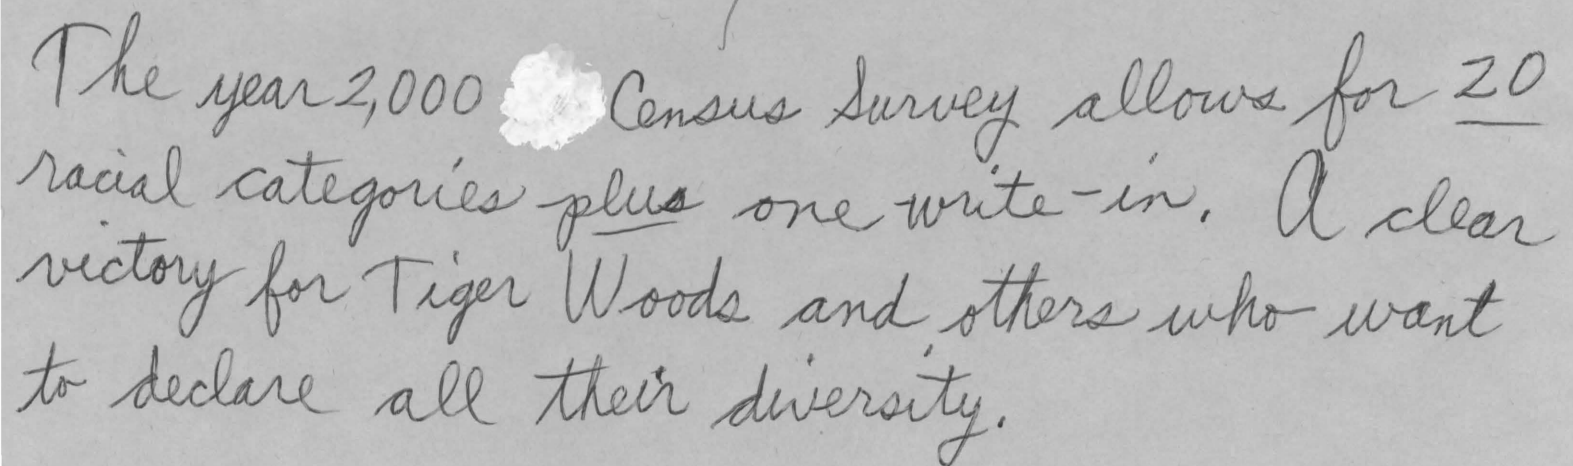 The year 2,000 Census Survey allows for 20
racial categories plus one write-in. A clear
victory for Tiger Woods and others who want
to declare all their diversity.